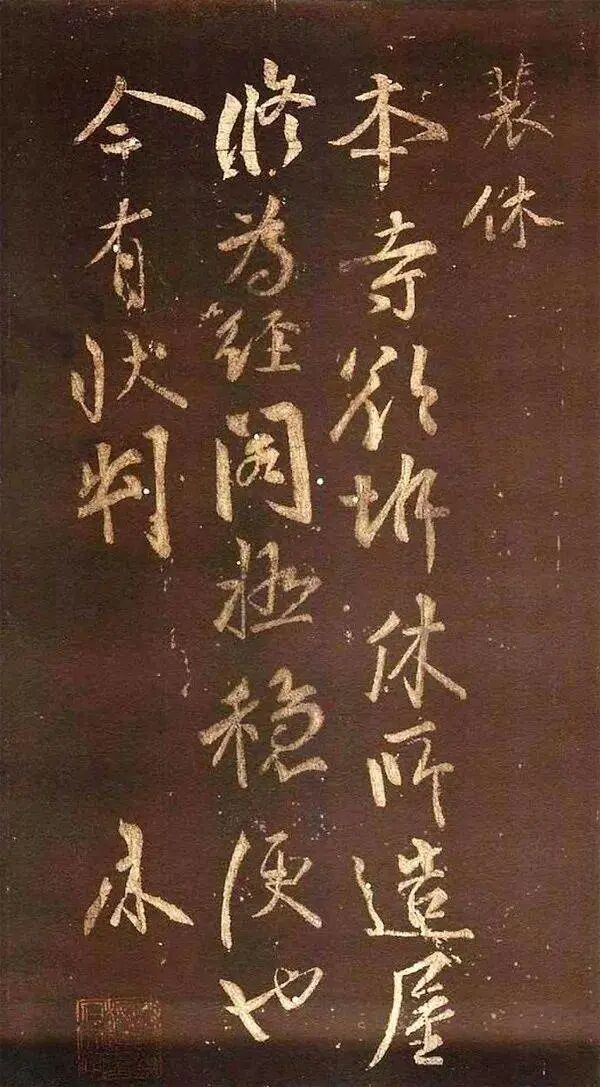 裴休
本寺欲拆休所造屋
修為經阁極穩便也
今有狀判
休